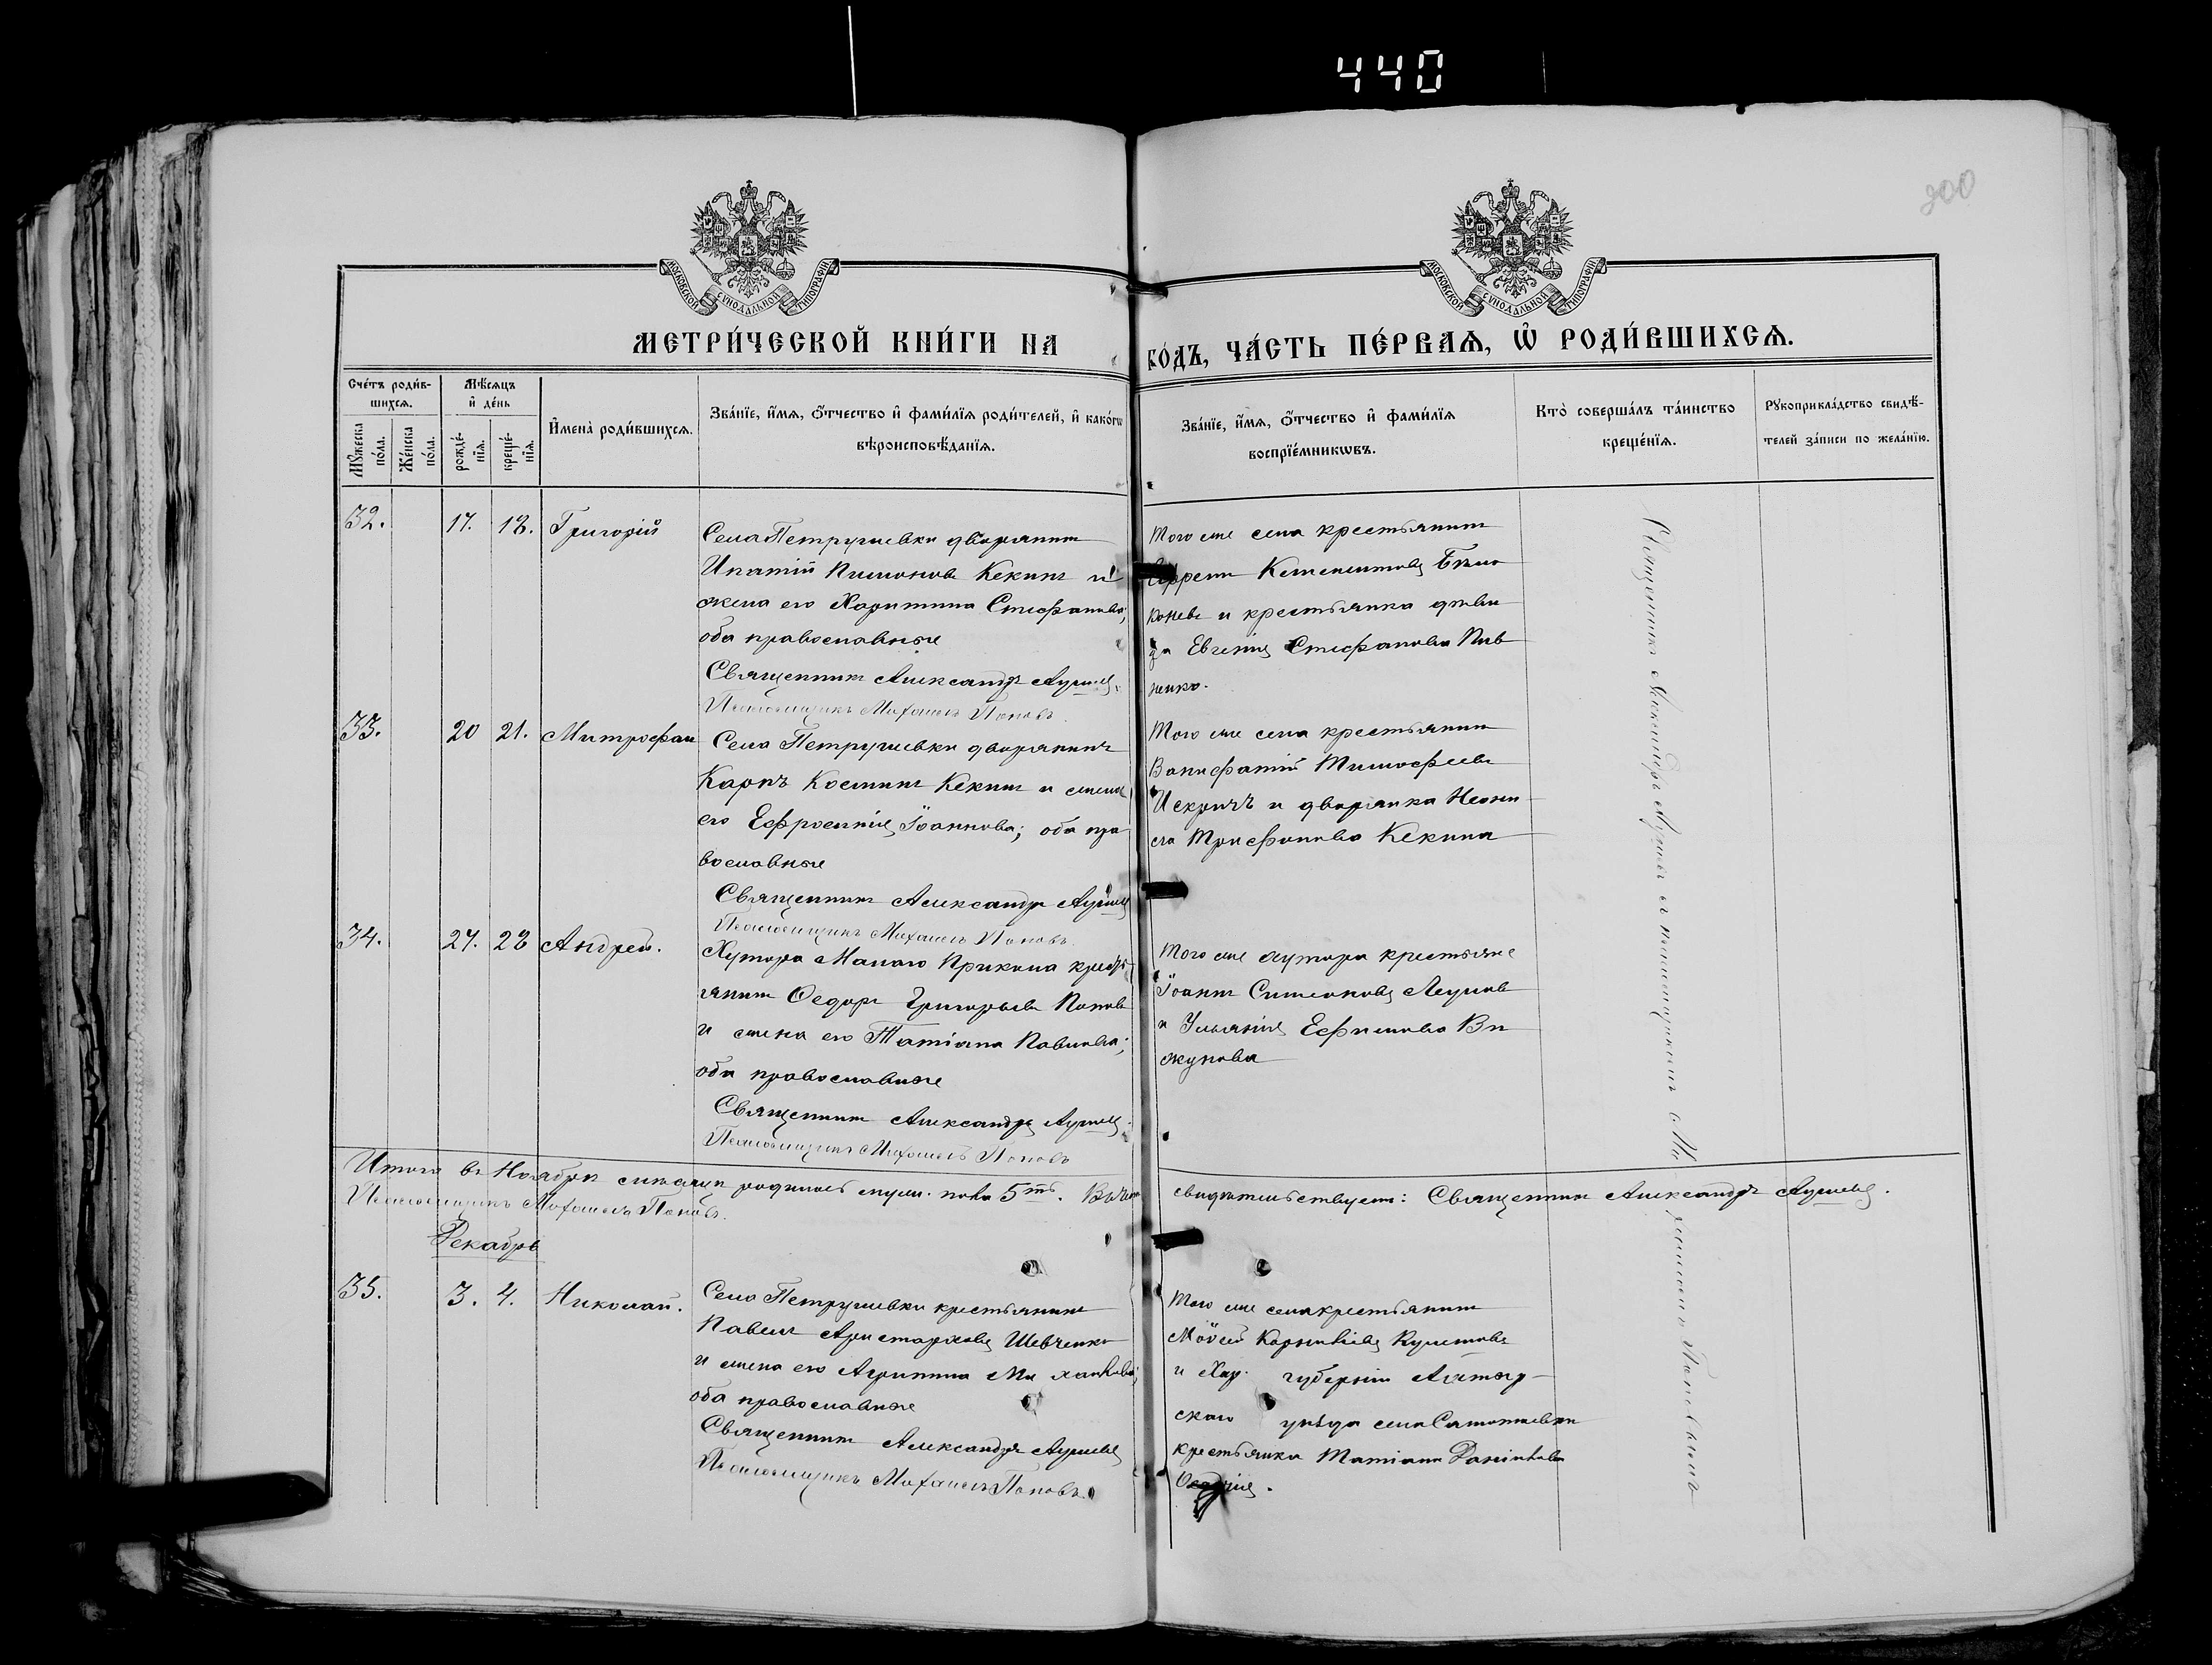 440
200
МОСКОВСКОЙ СѴНОДАЛЬНОЙ ТИПОГРАФІИ
МОСКОВСКОЙ СѴНОДАЛЬНОЙ ТИПОГРАФІИ
МЕТРИ́ЧЕСКОЙ КНИ́ГИ НА
ГО́ДЪ, ЧА́СТЬ ПЕ́РВАѦ, Ѡ҆ РОДИ́ВШИХСѦ.
Сче́тъ роди́в-
шихсѧ.
Мѹжеска по́ла.
Же́нска по́ла.
Мѣ́сѧцъ
и҆ де́нь
рожде́-
нїѧ.
креще́-
нїѧ.
И҆мена̀ роди́вшихсѧ.
Зва́нїе, и҆́мѧ, ѻ҆́тчество и҆ фами́лїѧ роди́телей, и҆ како́гѡ
вѣроисповѣ́данїѧ.
Зва́нїе, и҆́мѧ, ѻ҆́тчество и҆ фами́лїѧ
воспрїе́мникѡвъ.
Кто̀ соверша́лъ та́инство
креще́нїѧ.
Рѹкоприкла́дство свидѣ́-
телей за́писи по жела́нїю.
32. 17. 18. Григорій
Села Петрушевки дворянинъ
Ипатій Пимоновъ Кекинъ и
жена его Харитина Стефанова;
оба православные
Священникъ Александръ
Псаломщикъ Михаилъ Поповъ.
Того же села крестьянинъ
Ефремъ
и крестьянка дѣви
ца Евгенія Стефанова Пив
ненко.
33. 20 21. Митрофан
Села Петрушевки дворянинъ
Карпъ Косминъ Кекинъ и жена
его Ефросинія Іоаннова; оба пра
вославные
Священникъ Александръ
Псаломщикъ Михаилъ Поповъ.
Того же села крестьянин
Вонифатій Тимофеевъ
Искричъ и дворянка Неони
ла Трифонова Кекина
34. 27. 28 Андрей.
Хутора Малаго Прикола кресть
янинъ Ѳедоръ Григорьевъ Поповъ
и жена его Татіана Павлова;
оба православные
Священникъ Александръ
Псаломщикъ Михаилъ Поповъ
Того же хутора крестьяне
Іоаннъ Симеоновъ
и Ульянія Ефимова Ви
жунова
Итого въ Ноябрѣ мѣсяцѣ родилось муж. пола 5ть. Въ чемъ
свидѣтельствуемъ: Священникъ Александръ
Псаломщикъ Михаилъ Поповъ.
Декабрь
35. 3. 4. Николай.
Села Петрушевки крестьянинъ
Павелъ Аристарховъ Шевченко
и жена его Агрипина Михайлова;
оба православные
Священникъ Александръ
Псаломщикъ Михаилъ Поповъ.
Того же села крестьянинъ
Мойсей Корнилiевъ
и Хар. губерніи Ахтыр-
скаго уѣзда села
крестьянка Татіана Даніилова
Священникъ Александръ съ псаломщикомъ Ми
хаиломъ Поповымъ